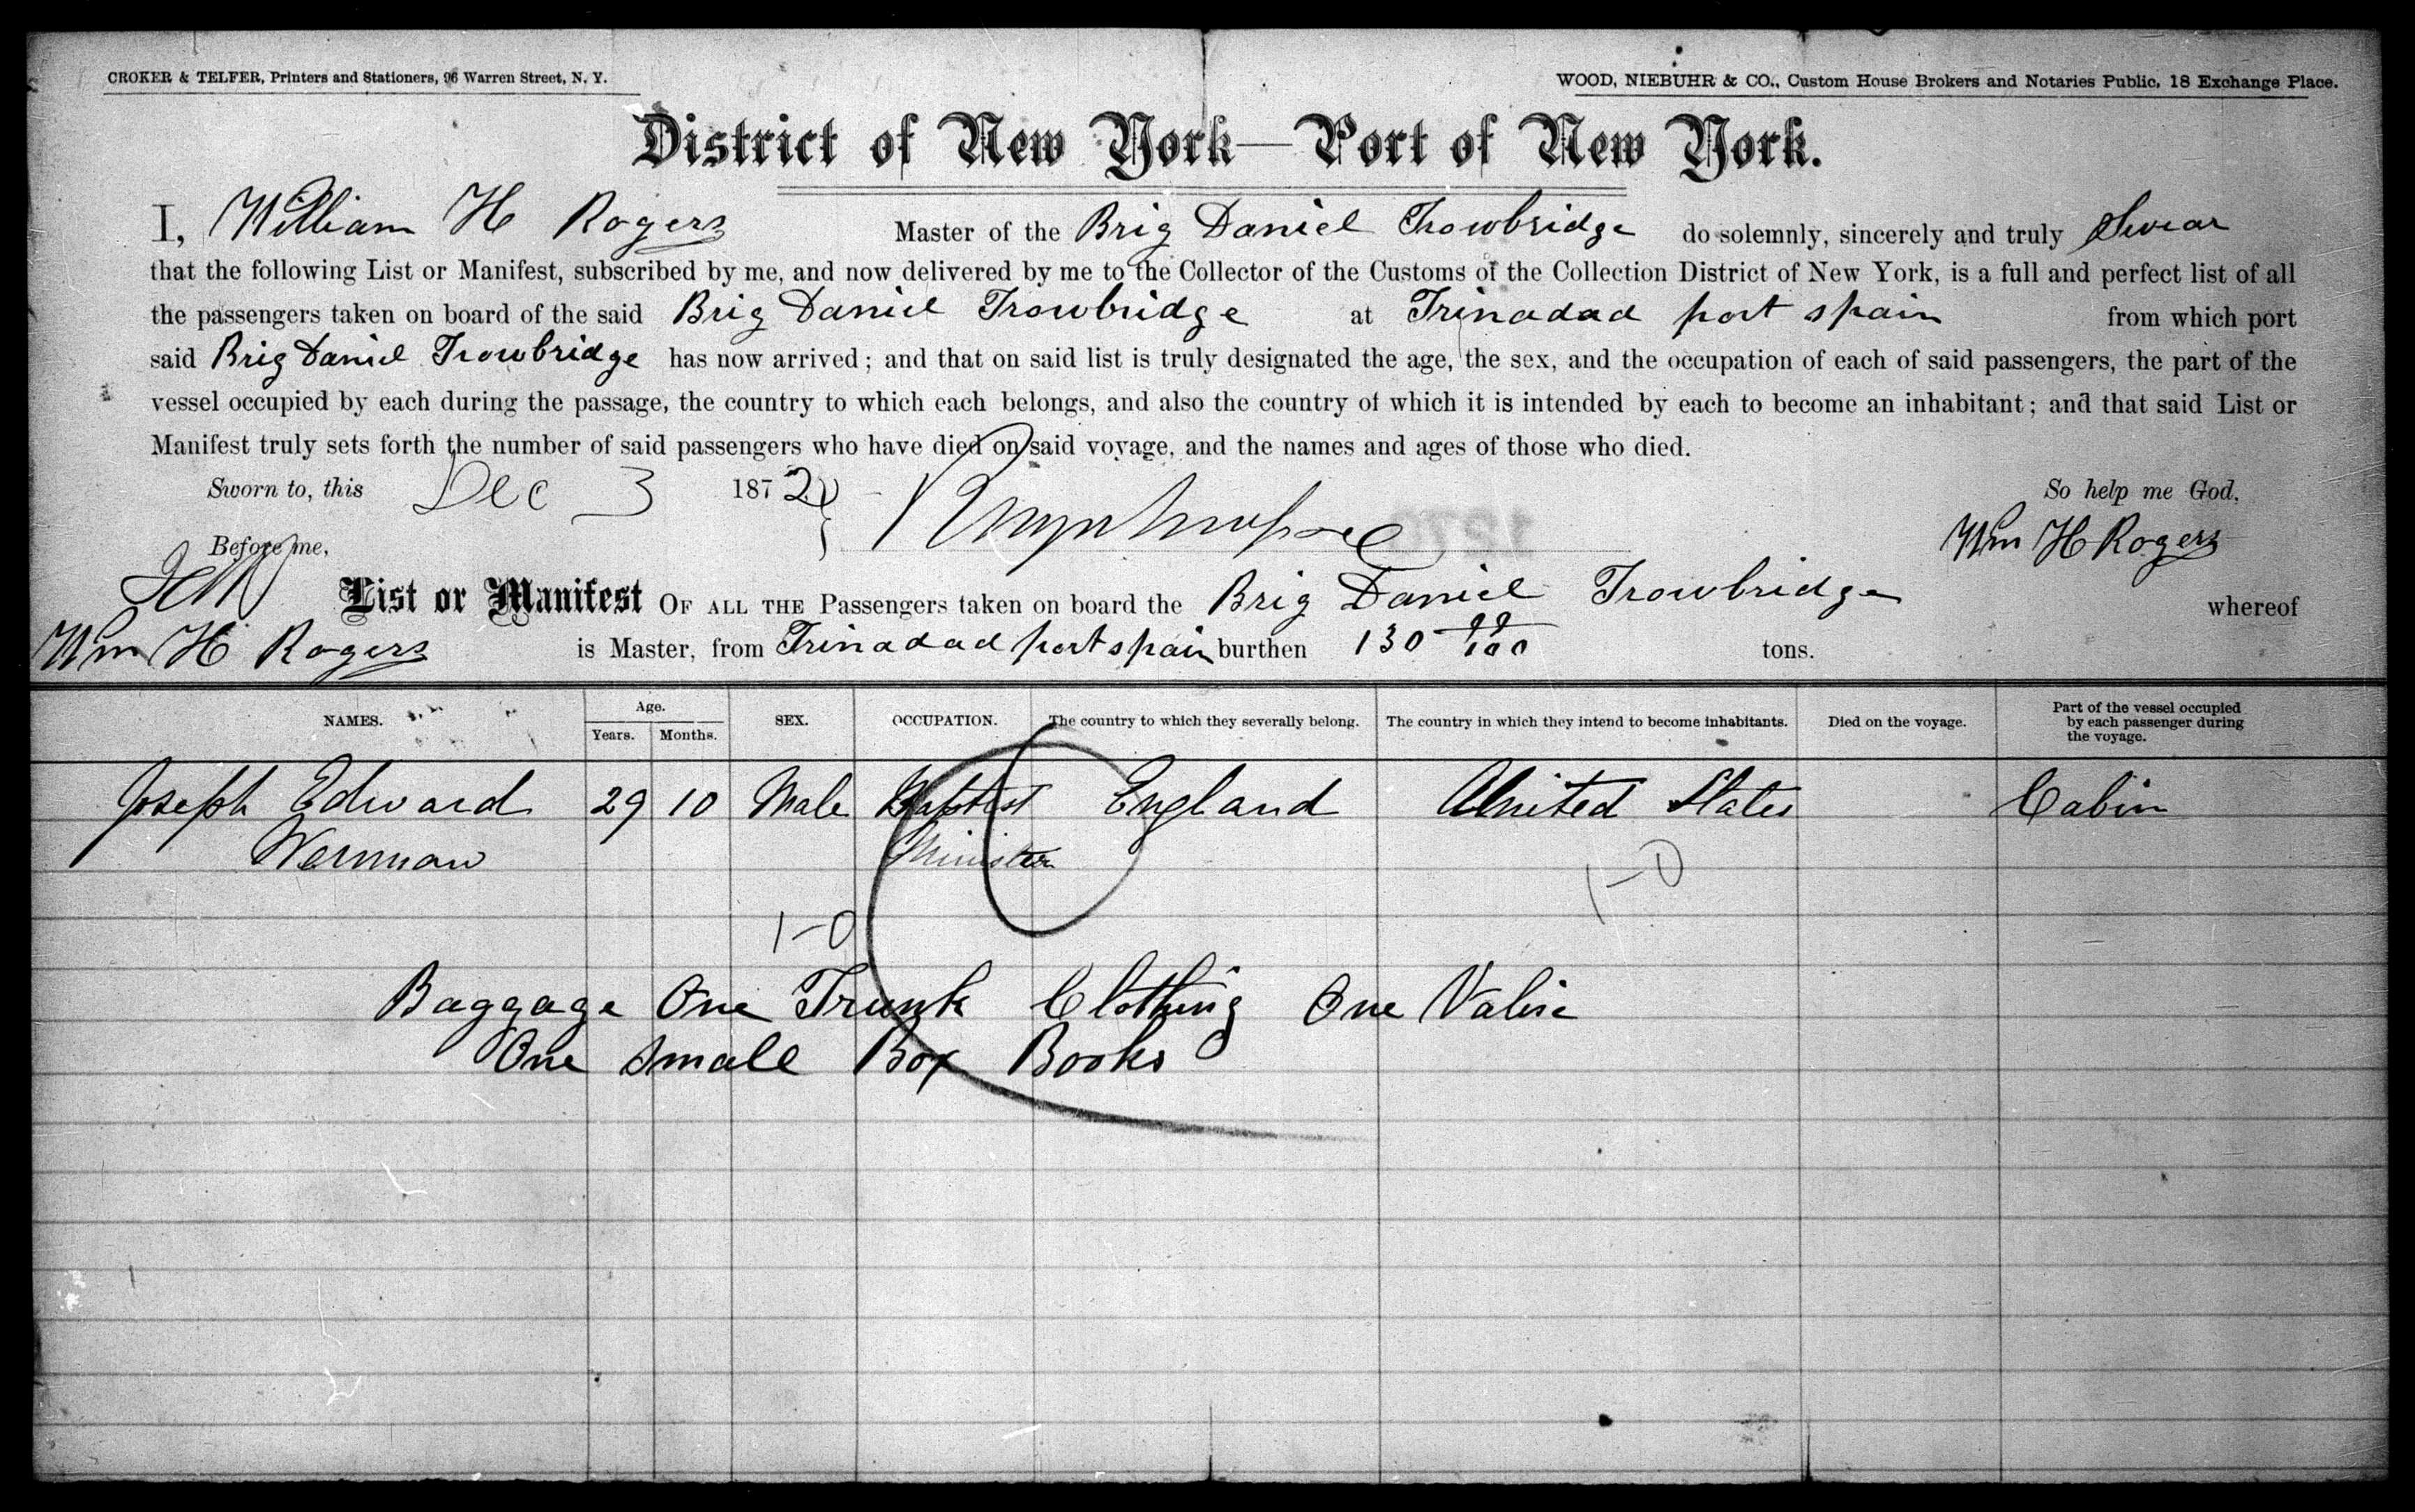 CROKER & TELFER, Printers and Stationers, 96 Warren Street, N. Y.
WOOD, NIEBUHR & CO., Custom House Brokers and Notaries Public, 18 Exchange Place.
District of New York—Port of New York.
I, William H Rogers Master of the Brig Daniel Trowbridge do solemnly, sincerely and truly Swear
that the following List or Manifest, subscribed by me, and now delivered by me to the Collector of the Customs of the Collection District of New York, is a full and perfect list of all
the passengers taken on board of the said Brig Daniel Trowbridge at Trinadad port spain from which port
said Brig Daniel Trowbridge has now arrived; and that on said list is truly designated the age, the sex, and the occupation of each of said passengers, the part of the
vessel occupied by each during the passage, the country to which each belongs, and also the country of which it is intended by each to become an inhabitant; and that said List or
Manifest truly sets forth the number of said passengers who have died on said voyage, and the names and ages of those who died.
Sworn to, this Dec 3 1872 So help me God,
Before me, Wm H Rogers
List or Manifest OF ALL THE Passengers taken on board the Brig Daniel Trowbridge whereof
Wm H Rogers is Master, from Trinadad port spain burthen 130 99/100 tons.
NAMES. Age. Years. Months. SEX. OCCUPATION. The country to which they severally belong. The country in which they intend to become inhabitants. Died on the voyage. Part of the vessel occupied by each passenger during the voyage.
Joseph Edward 29 10 Male Baptist England United States Cabin
Minister
1-0
1-0
Baggage One Trunk Clothing One Valise
One Small Box Books